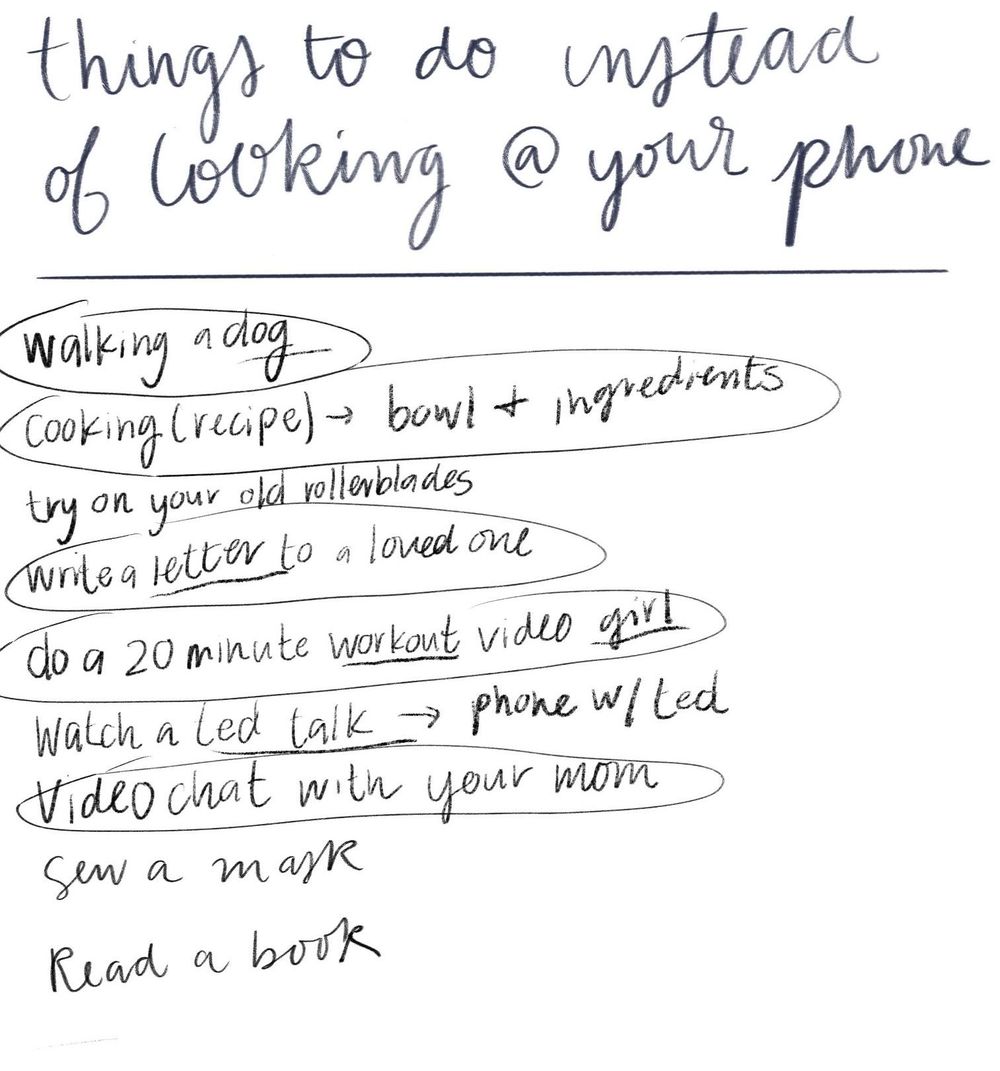 things to do instead
of looking @ your phone
walking a dog
cooking (recipe) → bowl + ingredients
try on your old rollerblades
write a letter to a loved one
do a 20 minute workout video girl
Watch a ted talk → phone w/ ted
Video chat with your mom
Sew a mask
Read a book